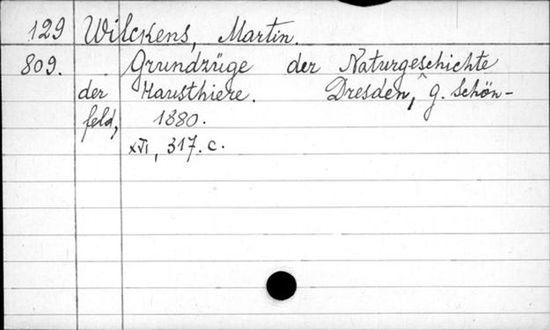 129 Wilckens, Martin.
809. Grundzüge der Naturgeschichte
der Hausthiere. Dresden, G. Schön-
feld, 1880.
XVI, 317. c.